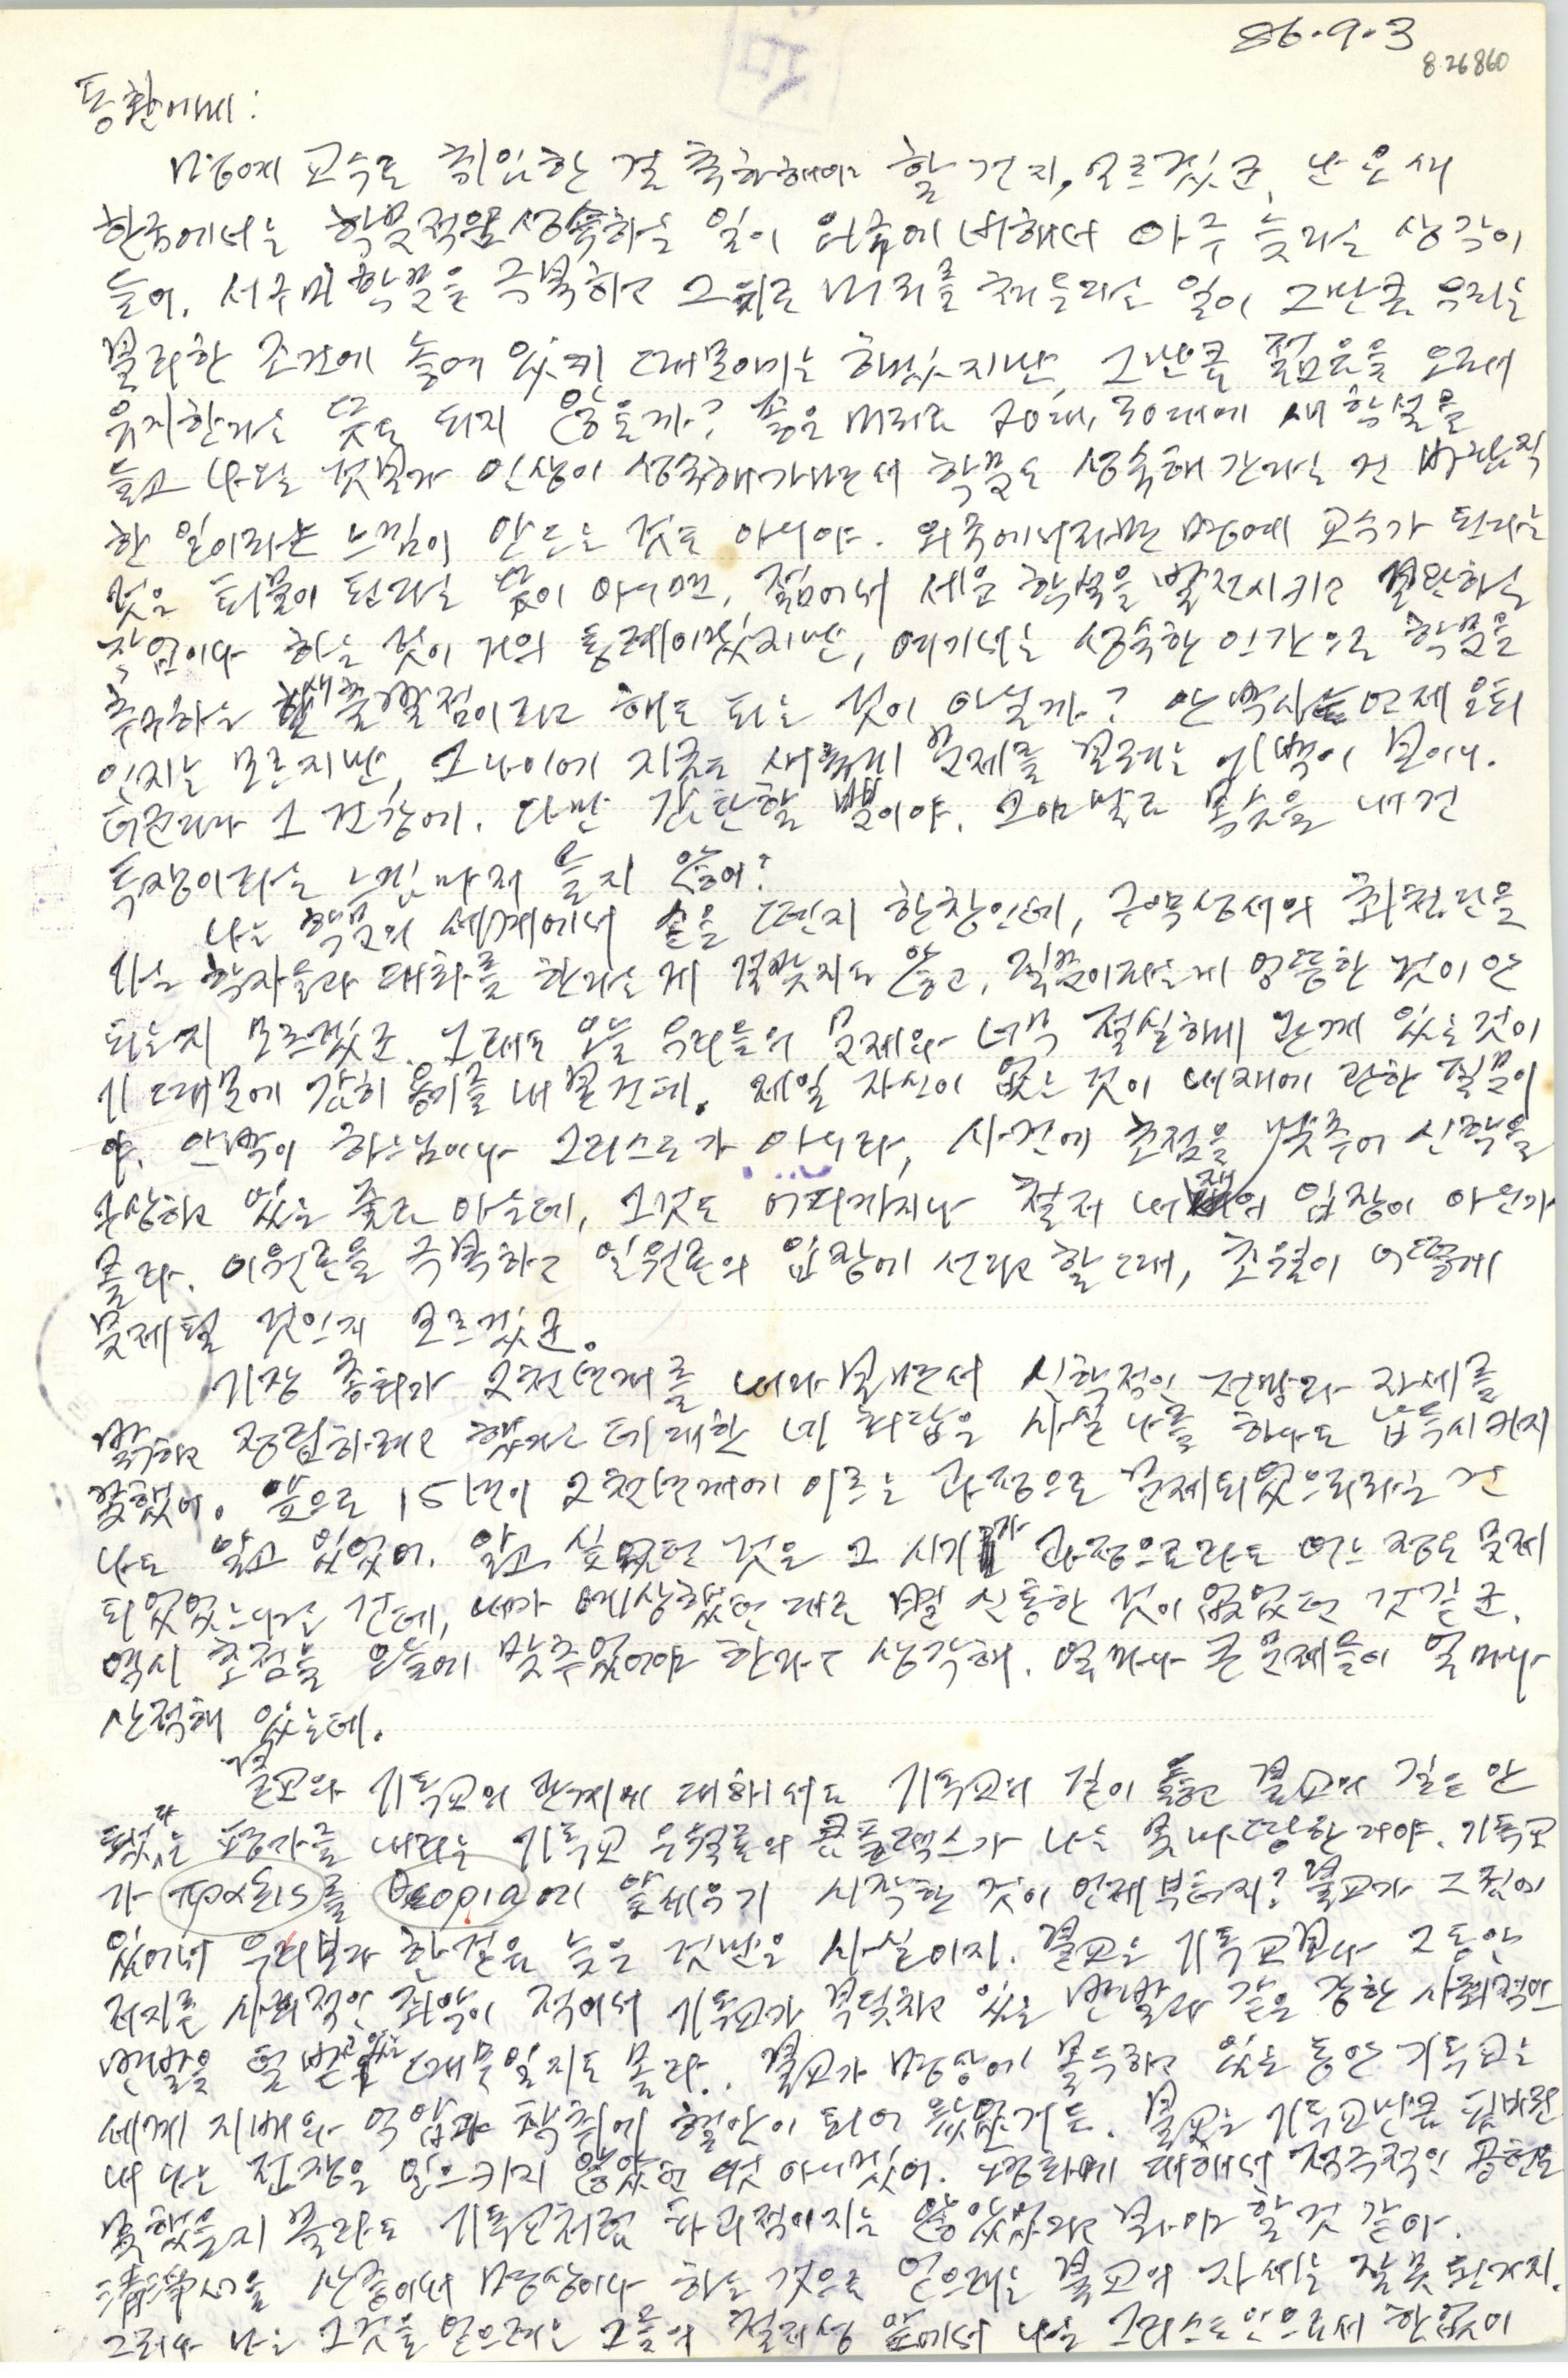 86.9.3
826860
동환에게:
명예 교수로 취임한 걸 축하해야 할 건지, 모르겠군, 난 요새
한국에서는 학문적으로 성숙하는 일이 외국에 비해서 아주 늦다는 생각이
들어. 서구의 학문을 극복하고 그 위로 머리를 쳐든다는 일이 그만큼 우리는
불리한 조건에 놓여 있기 때문이기는 하겠지만, 그만큼 젊음을 오래
유지한다는 뜻도 되지 않을까? 좋은 머리로 20대, 30대에 새 학설을
들고 나오는 것보다 인생이 성숙해가면서 학문도 성숙해 간다는 건 바람직
한 일이라는 느낌이 안 드는 것도 아니야. 외국에서라면 명예 교수가 된다는
것은 퇴물이 된다는 뜻이 아니면, 젊어서 세운 학설을 발전시키고 보완하는
작업이나 하는 것이 거의 통례이겠지만, 여기서는 성숙한 인간으로 학문을
추구하는 새 출발점이라고 해도 되는 것이 아닐까? 안 박사는 언제 은퇴
인지는 모르지만, 그 나이에 지금도 새롭게 문제를 보려는 의욕이 보이니.
더군다나 그 건강에. 다만 감탄할 뿐이야. 그야말로 목숨을 내건
투쟁이라는 느낌마저 들지 않어?
나는 학문의 세계에서 손을 뗀지 한참인데, 구약성서의 최첨단을
가는 학자들과 대화를 한다는 게 걸맞지도 않고, 질문이라는 게 엉뚱한 것이 안
되는지 모르겠군. 그래도 오늘 우리들의 문제와 너무 절실하게 관계 있는 것이
기 때문에 감히 용기를 내 본 건데. 제일 자신이 없는 것이 내재에 관한 질문이
야. 안박이 하느님이나 그리스도가 아니라, 사건에 초점을 맞추어 신학을
구상하고 있는 줄로 아는데, 그것도 어디까지나 철저 내재의 입장이 아닌가
몰라. 이원론을 극복하고 일원론의 입장에 선다고 할 때, 초월이 어떻게
문제될 것인지 모르겠군.
기장 총회가 2천년대를 내다보면서 신학적인 전망과 자세를
밝히고 정립하려고 했다는 데 대한 네 회답은 사실 나를 하나도 납득시키지
못했어. 앞으로 15년이 2천년대에 이르는 과정으로 문제되었으리라는 건
나도 알고 있었어. 알고 싶었던 것은 그 시기가 과정으로라도 어느 정도 문제
되었었느냐는 건데, 내가 예상했던 대로 별 신통한 것이 없었던 것 같군.
역시 초점을 오늘에 맞추었어야 한다고 생각해. 얼마나 큰 문제들이 얼마나
산적해 있는데.
불교와 기독교의 관계에 대해서도 기독교의 길이 옳고 불교의 길은 안
됐다는 평가를 내리는 기독교 우월론의 콤플렉스가 나는 못마땅한 거야. 기독교
가 πραξις를 θεορια에 앞세우기 시작한 것이 언제부터지? 불교가 그 점에
있어서 우리보다 한 걸음 늦은 것만은 사실이지. 불교는 기독교보다 그동안
저지른 사회적인 죄악이 적어서 기독교가 부딪치고 있는 반발과 같은 강한 사회적인
반발을 덜 받고 있는 때문일지도 몰라. 불교가 명상에 몰두하고 있는 동안 기독교는
세계 지배와 억압과 착취에 혈안이 되어 있었거든. 불교는 기독교만큼 피비린
내 나는 전쟁을 일으키지 않았던 것 아니겠어. 평화에 대해서 적극적인 공헌을
못했을지 몰라도 기독교처럼 파괴적이지는 않았었다고 보아야 할 것 같아.
淸淨心을 산중에서 명상이나 하는 것으로 얻으려는 불교의 자세는 잘못된 거지.
그러나 나는 그것을 얻으려는 그들의 철저성 앞에서 나는 그리스도인으로서 한없이